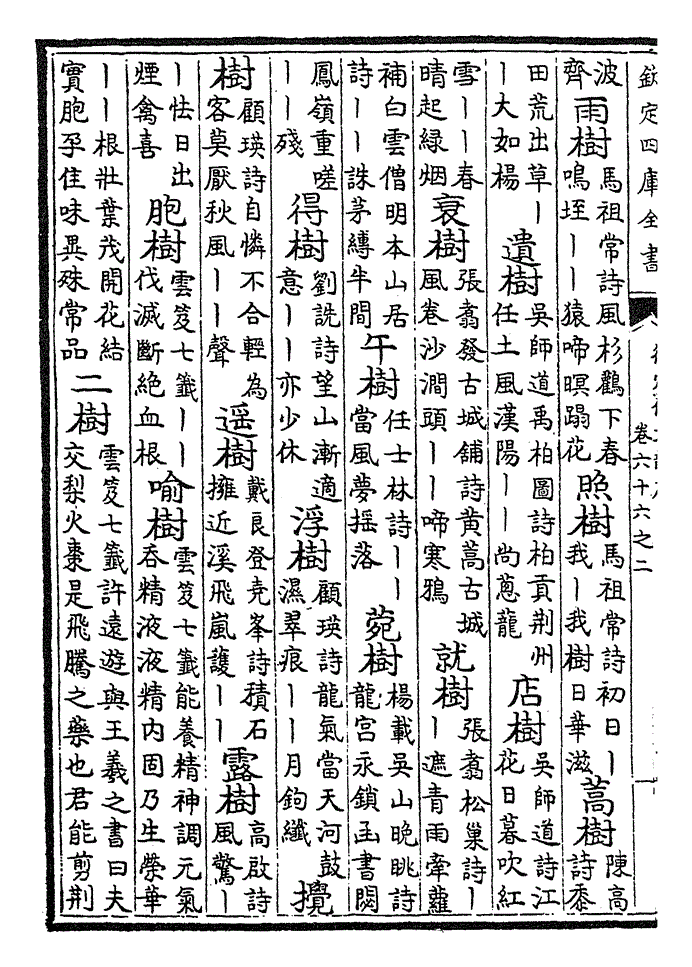 欽定四庫全書 卷六十六之二
波齊雨樹馬祖常詩風杉鸛下春鳴垤丨丨猿啼暝蹋花照樹馬祖常詩初日丨我丨我樹日華滋蒿樹陳高詩黍
田荒出草丨丨大如楊遺樹吳師道禹柏圖詩柏貢荆州任土風漢陽丨丨尚蔥蘢店樹吳師道詩江花日暮吹紅
雪丨丨春晴起緑烟衰樹張翥發古城舖詩黄蒿古城風卷沙澗頭丨丨啼寒鴉就樹張翥松巢詩丨丨遮青雨牽蘿
補白雲僧明本山居詩丨丨誅茅縛半間午樹任士林詩丨丨當風夢揺落菀樹楊載吳山晚眺詩龍宫永鎖函書閟
鳳嶺重嗟丨丨殘得樹劉詵詩望山漸適意丨丨亦少休浮樹顧瑛詩龍氣當天河鼓濕翠痕丨丨月鉤纖攪
樹顧瑛詩自憐不合輕為客莫厭秋風丨丨聲遥樹戴良登堯峯詩積石擁近溪飛嵐護丨丨露樹高啟詩風驚丨
丨怯日出煙禽喜胞樹雲笈七籤丨丨伐滅斷絶血根喻樹雲笈七籤能養精神調元氣吞精液液精内固乃生榮華
丨丨根壯葉茂開花結實胞孕佳味異殊常品二樹雲笈七籤許遠遊與王羲之書曰夫交梨火棗是飛騰之藥也君能剪荆